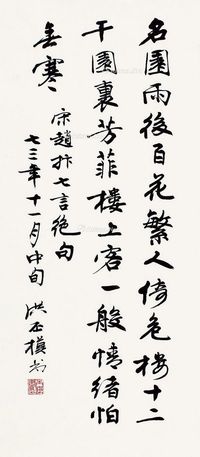 名園雨後百花繁人倚危樓十二
干園裏芳菲樓上客一般情緒怕
春寒
宋趙抃七言絕句
七三年十一月中旬 洪丕模书